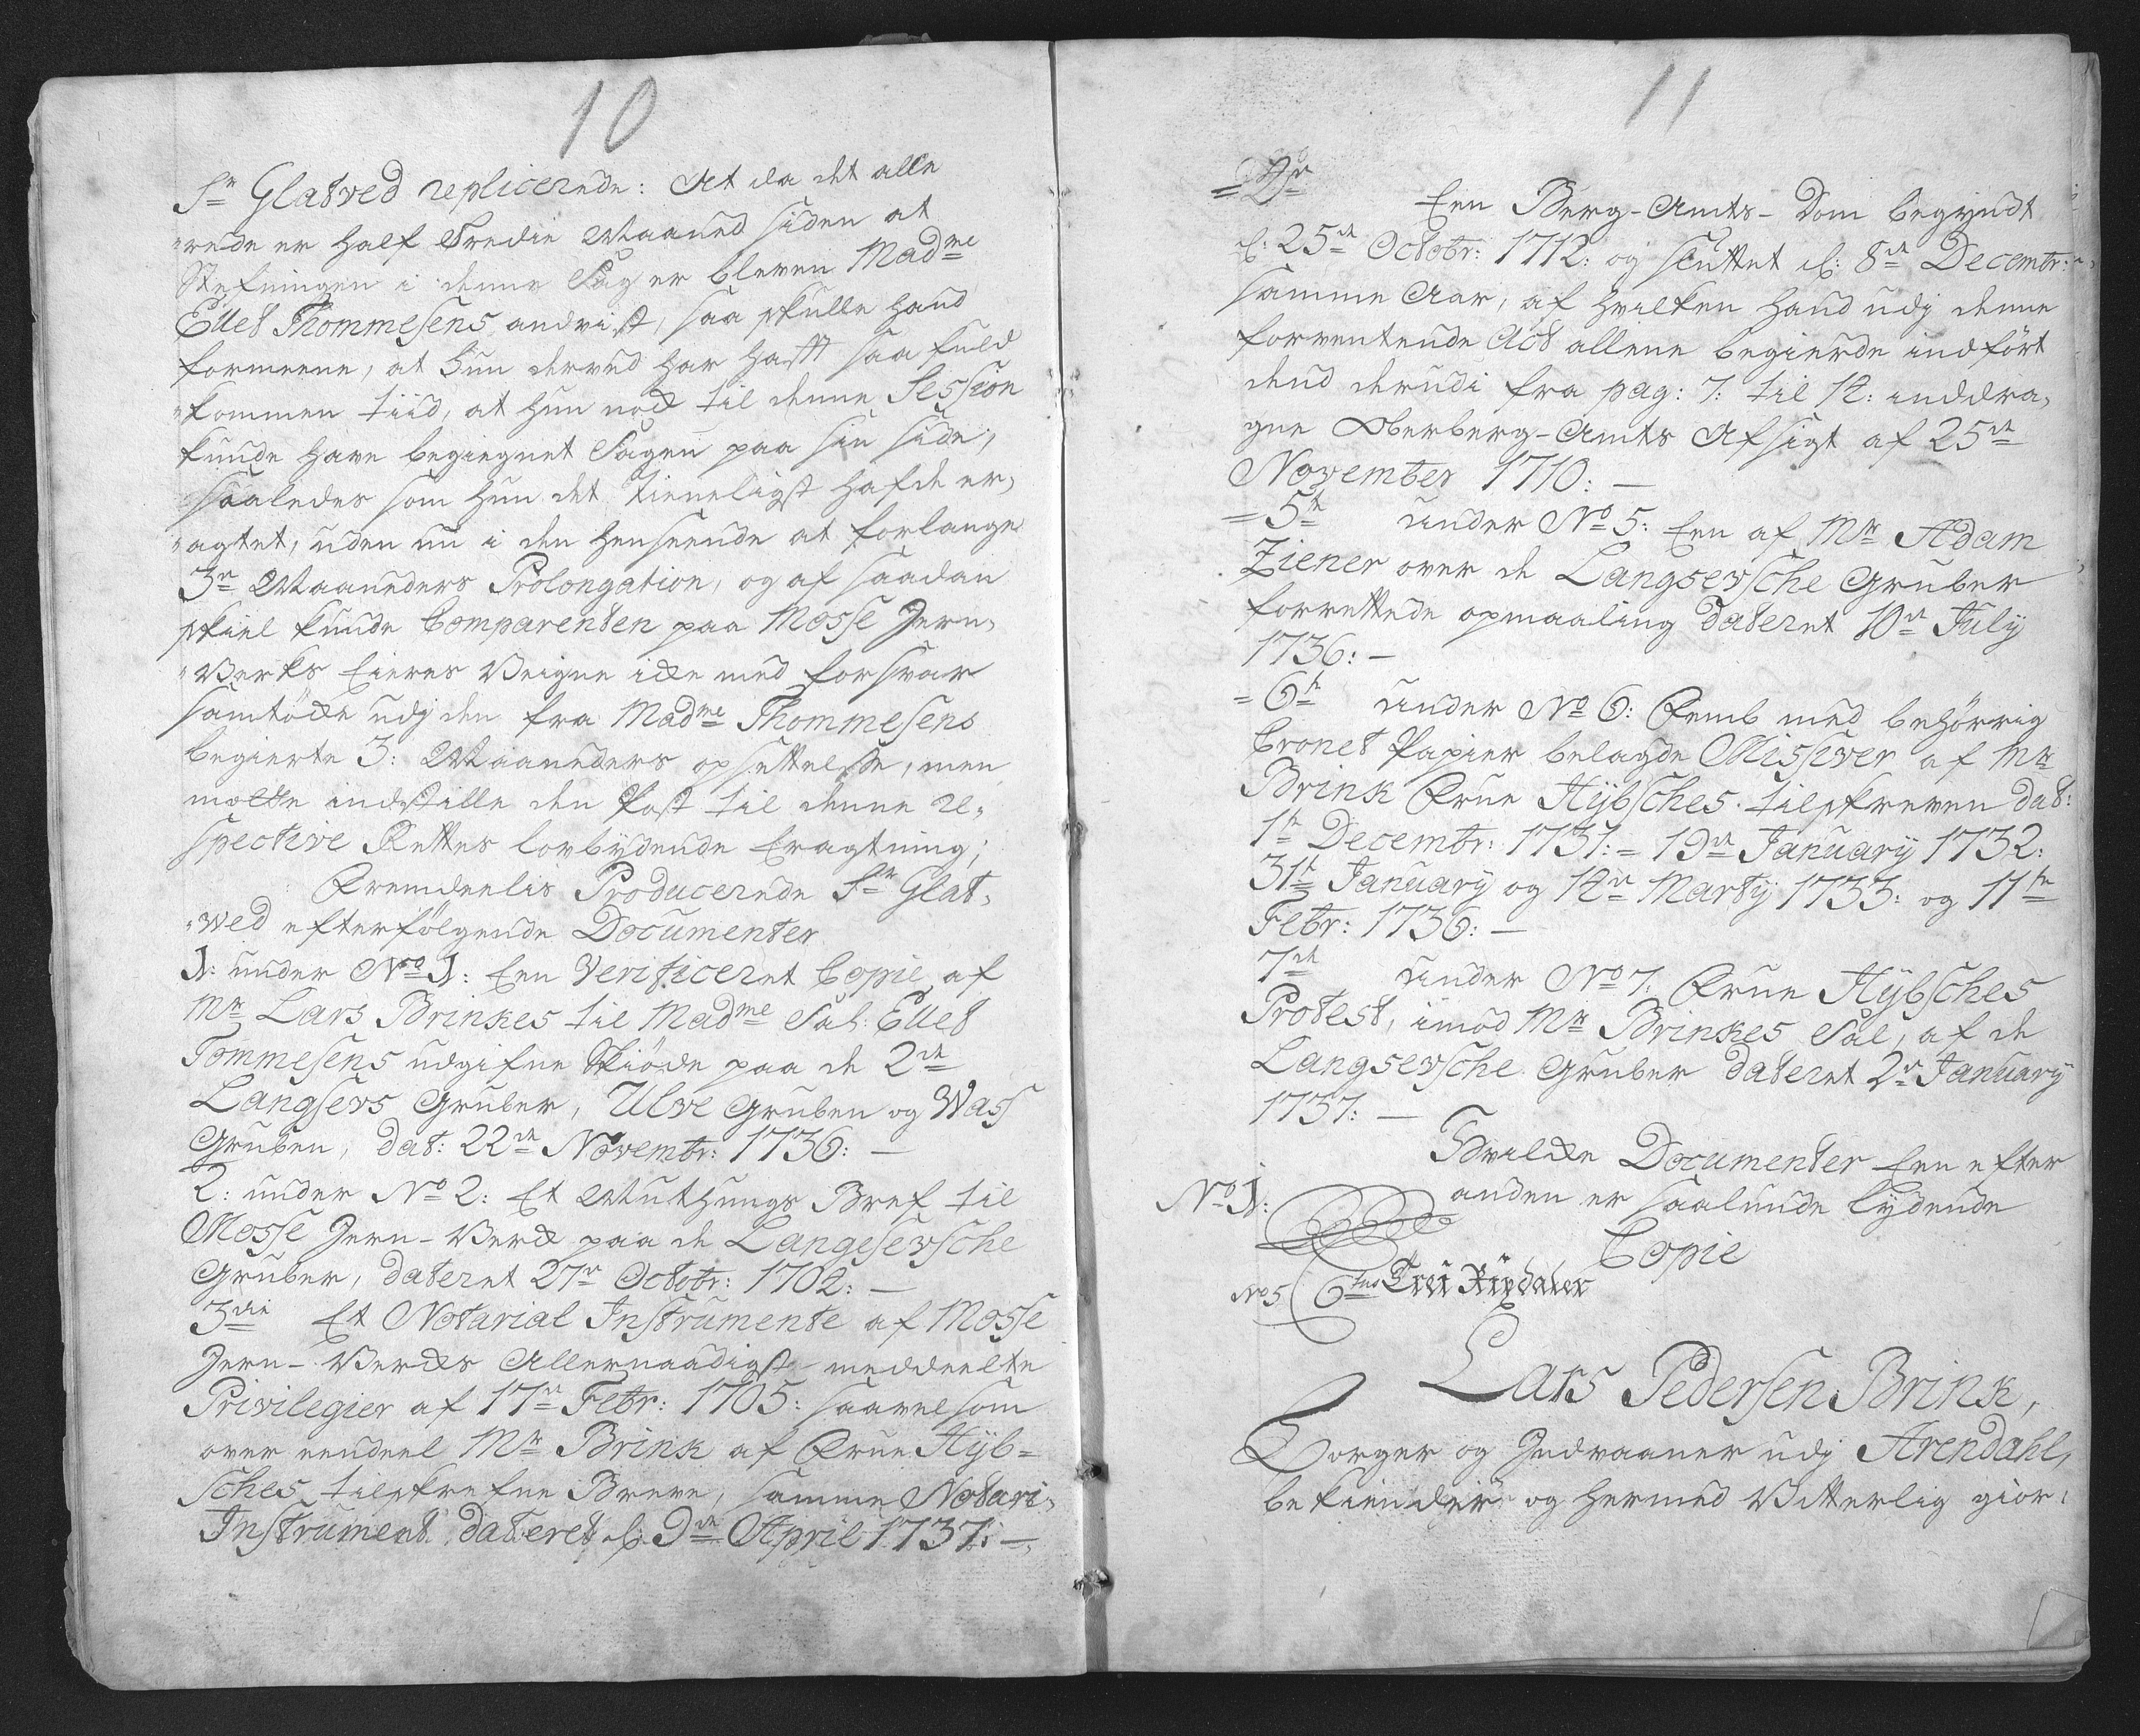 10
Sr Glatved replicerede: At da det alle
"rede er half Tredie Maaned siden at
Stefningen i denne Sag er bleven Madme
Ellet Thommesens andvist, saa skulle hand
formeene, at hun derved har hafft saa fuld
"kommen tiid, at hun nock til denne Session
kunde have begiegnet Sagen paa sin side,
saaledes som hun det tieneligst hafde er,
"agtet, uden nu i den henseende at forlange
3de Maaneders Prolongation, og af saadan
skiel kunde Comparenten paa Mosse Jern,
"Verks Eieres Veigne icke med forsvar
samtöcke udj den fra Madme Thommesens
begierte 3: Maaneders opsettelse, men
motte indstille den Post til denne Re,
spective Rettes lovbydende Eragtning;
Fremdeelis Producerede Sr Glat,
"wed efterfölgende Documenter
1: under No 1: Een Verificeret Copie af
Mr Lars Brinkes til Madme Sal: Ellet
Tommesens udgifne Skiöde paa de 2de
Langsevs Gruber, Ulve Gruben og Wass
Gruben, dat: 22de Novembr: 1736: —
2: under No 2: Et Muthungs Bref til
Mosse Jern-Verck paa de Langesevsche
Gruber, dateret 27de Octobr: 1704: —
3die Et Notarial Instrumente af Mosse
Jern-Vercks Allernaadigst meddeelte
Privilegier af 17de Febr: 1705: saavelsom
over eendeel Mr Brink af Frue Hÿb=
sches tilskrefne Breve, samme Notari,
Instrument dateret d: 9de April 1737: —
11
= 4de Een Berg-Amts-Dom begyndt
d: 25de Octobr: 1712: og sluttet d: 8de Decembr:
samme Aar, af hvilken hand udj denne
forventende Act allene begierde indfört
dend derudi fra pag: 7: til 14: inddra,
gne Oberberg-Amts Afsigt af 25de
November 1710: —
= 5te under No 5: Een af Mr Adam
Ziener over de Langsevsche Gruber
forrettede opmaaling dateret 10de Julÿ
1736: —
= 6te under No 6: Femb med behörrig
Cronet Papier belagde Missiver af Mr
Brink Frue Hÿbsches tilskreven dat:
1te Decembr: 1731: = 19de Januarÿ 1732:
31te Januarÿ og 14de Martÿ 1733: og 11te
Febr: 1736: —
7de under No 7: Frue Hÿbsches
Protest, imod Mr Brinkes Sal, af de
Langsevsche Gruber dateret 2de Januarÿ
1737: —
Hvilcke Documenter Een efter
anden er saalunde lydende
No 1:
Copie
No 5 6tus Trei Rixdaler
Lars Pedersen Brink,
Borger og Indvaaner udj Arendahl,
bekiender og hermed Vitterlig giör: